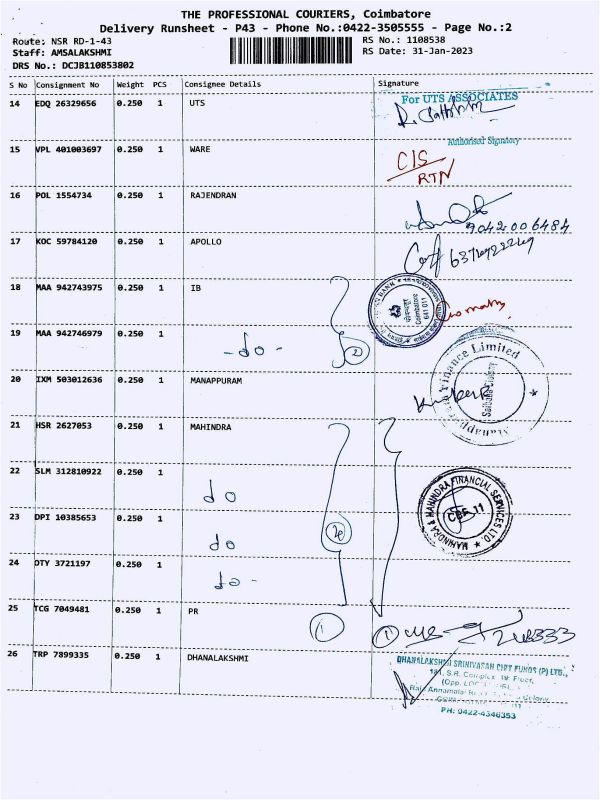 THE PROFESSIONAL COURIERS, Coimbatore
Delivery Runsheet - P43 - Phone No.:0422-3505555 - Page No.:2
Route: NSR RD-1-43
RS No.: 1108538
Staff: AMSALAKSHMI
RS Date: 31-Jan-2023
DRS No.: DCJB110853802
S No Consignment No Weight PCS Consignee Details Signature
14 EDQ 26329656 0.250 1 UTS
For UTS ASSOCIATES
Authorised Signatory
15 VPL 401003697 0.250 1 WARE
C/S
RTN
16 POL 1554734 0.250 1 RAJENDRAN
9042006484
17 KOC 59784120 0.250 1 APOLLO
18 MAA 942743975 0.250 1 IB
Coimbatore
641 011
19 MAA 942746979 0.250 1
-do-
2
20 IXM 503012636 0.250 1 MANAPPURAM
Finance Limited
Saibaba Colony
21 HSR 2627053 0.250 1 MAHINDRA
22 SLM 312810922 0.250 1
do
MAHINDRA & MAHINDRA FINANCIAL SERVICES LTD.
CBE 11
23 DPI 10385653 0.250 1
do
24 OTY 3721197 0.250 1
do -
25 TCG 7049481 0.250 1 PR
1
1
26 TRP 7899335 0.250 1 DHANALAKSHMI
DHANALAKSHMI SRINIVASAN CHIT FUNDS (P) LTD.,
181, S.R. Complex, Floor,
(Opp.
Annamalai
Colony
PH: 0422-4346353